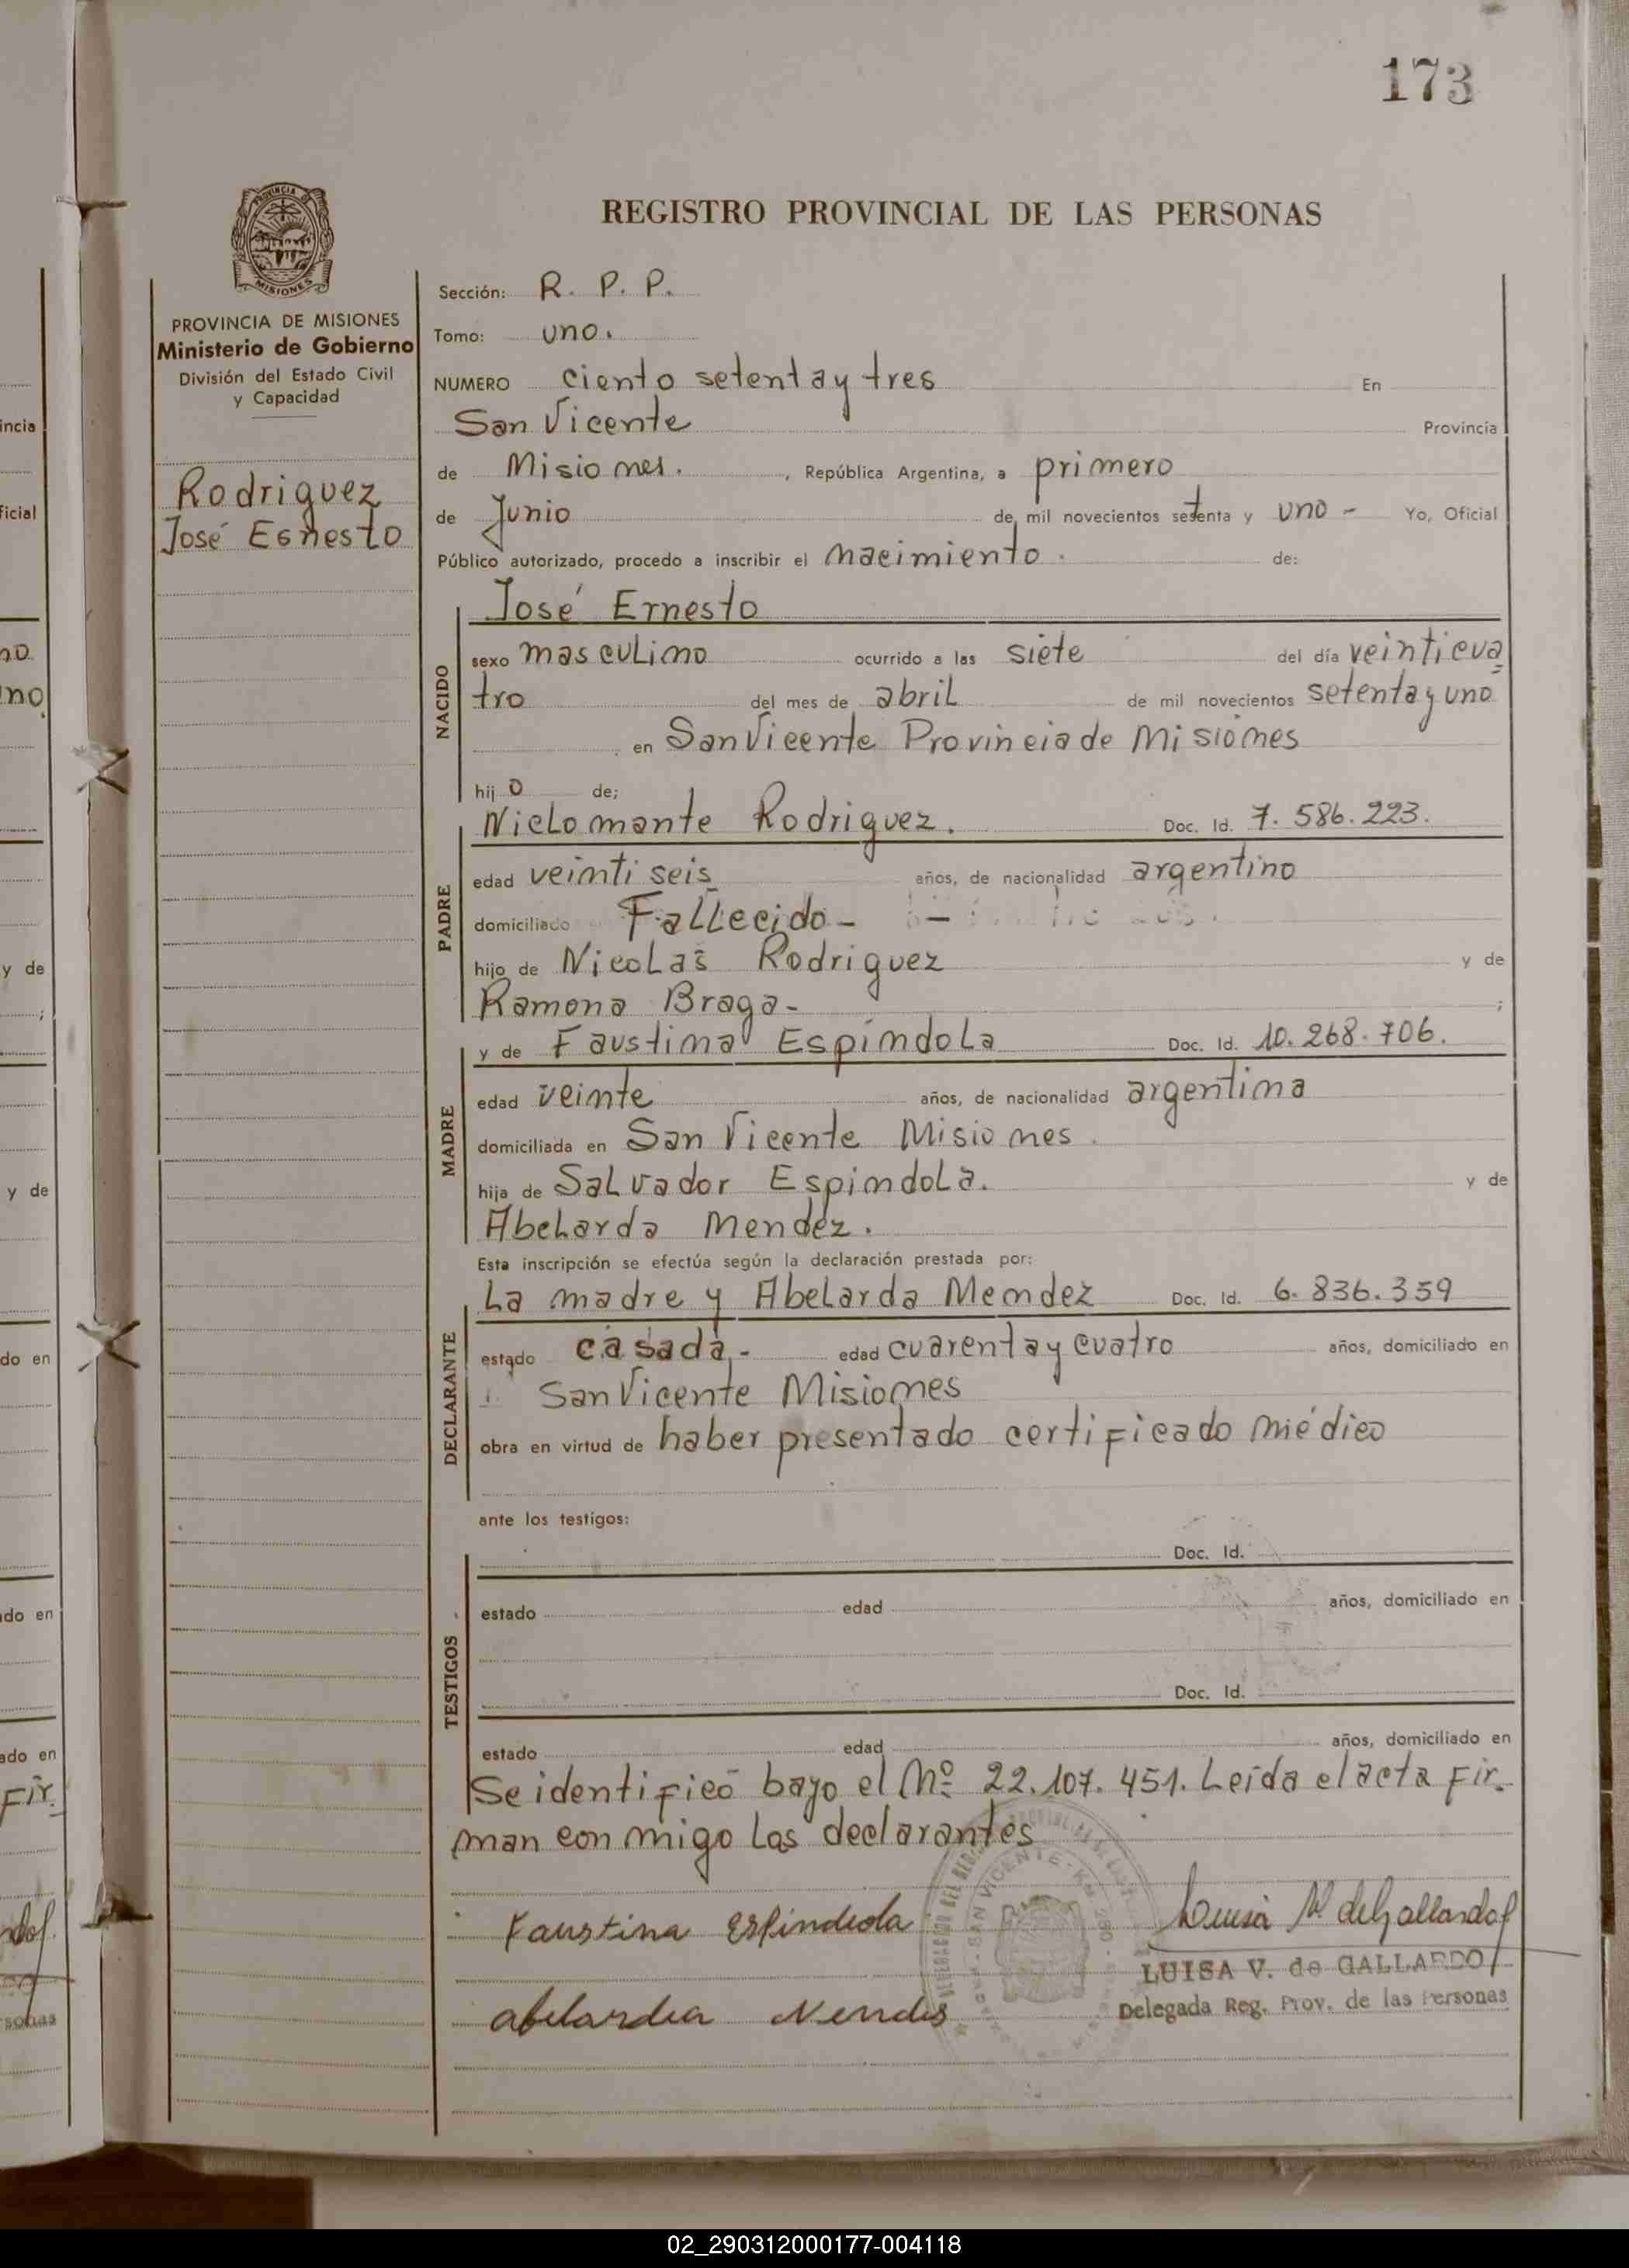 173
PROVINCIA DE
MISIONES
REGISTRO PROVINCIAL DE LAS PERSONAS
PROVINCIA DE MISIONES
Ministerio de Gobierno
División del Estado Civil
y Capacidad
Rodriguez
José Esnesto
Sección: R. P. P.
Tomo: uno.
NUMERO ciento setenta y tres En
San Vicente Provincia
de Misiones. , República Argentina, a primero
de Junio de mil novecientos setenta y uno - Yo, Oficial
Público autorizado, procedo a inscribir el nacimiento. de:
NACIDO
José Ernesto
sexo masculino ocurrido a las siete del día veinticua
tro del mes de abril de mil novecientos setenta y uno
en San Vicente Provincia de Misiones
hij o de;
PADRE
Niclomante Rodriguez. Doc. Id. 7.586.223.
edad veinti seis años, de nacionalidad argentino
domiciliado Fallecido -
hijo de Nicolas Rodriguez y de
Ramona Braga - ;
MADRE
y de Faustina Espíndola Doc. Id. 10.268.706.
edad veinte años, de nacionalidad argentina
domiciliada en San Vicente Misiones.
hija de Salvador Espindola. y de
Abelarda Mendez.
Esta inscripción se efectúa según la declaración prestada por:
DECLARANTE
La madre y Abelarda Mendez Doc. Id. 6.836.359
estado casada, - edad cuarenta y cuatro años, domiciliado en
San Vicente Misiones
obra en virtud de haber presentado certificado médico
ante los testigos:
TESTIGOS
Doc. Id.
estado edad años, domiciliado en
Doc. Id.
estado edad años, domiciliado en
Se identificó bajo el Nº 22.107.451. Leída el acta fir-
man conmigo las declarantes
Faustina Espindola
Luisa V. de Gallardo
LUISA V. de GALLARDO
Delegada Reg. Prov. de las Personas
abelarda Mendes
incia
ficial
no
y de
;
y de
do en
do en
ado en
Fir.
sonas
02_290312000177-004118